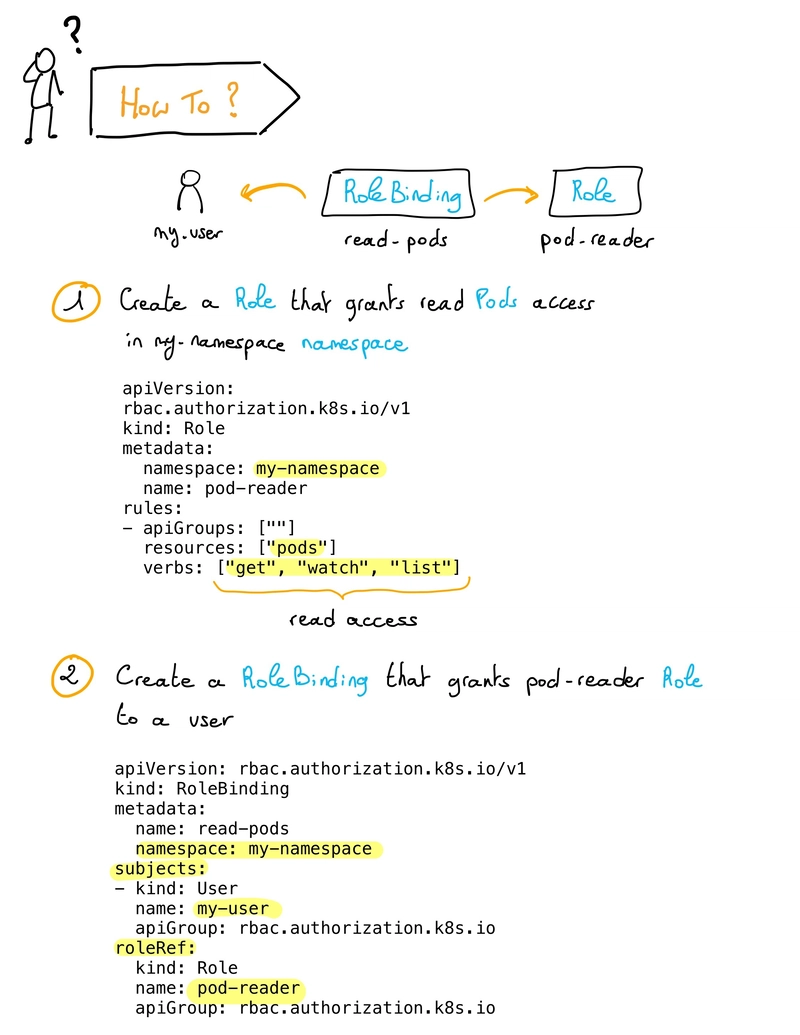 ?
How To ?
RoleBinding
Role
my.user
read-pods
pod-reader
1 Create a Role that grants read Pods access
in my-namespace namespace
apiVersion:
rbac.authorization.k8s.io/v1
kind: Role
metadata:
  namespace: my-namespace
  name: pod-reader
rules:
- apiGroups: [""]
  resources: ["pods"]
  verbs: ["get", "watch", "list"]
read access
2 Create a RoleBinding that grants pod-reader Role
to a user
apiVersion: rbac.authorization.k8s.io/v1
kind: RoleBinding
metadata:
  name: read-pods
  namespace: my-namespace
subjects:
- kind: User
  name: my-user
  apiGroup: rbac.authorization.k8s.io
roleRef:
  kind: Role
  name: pod-reader
  apiGroup: rbac.authorization.k8s.io